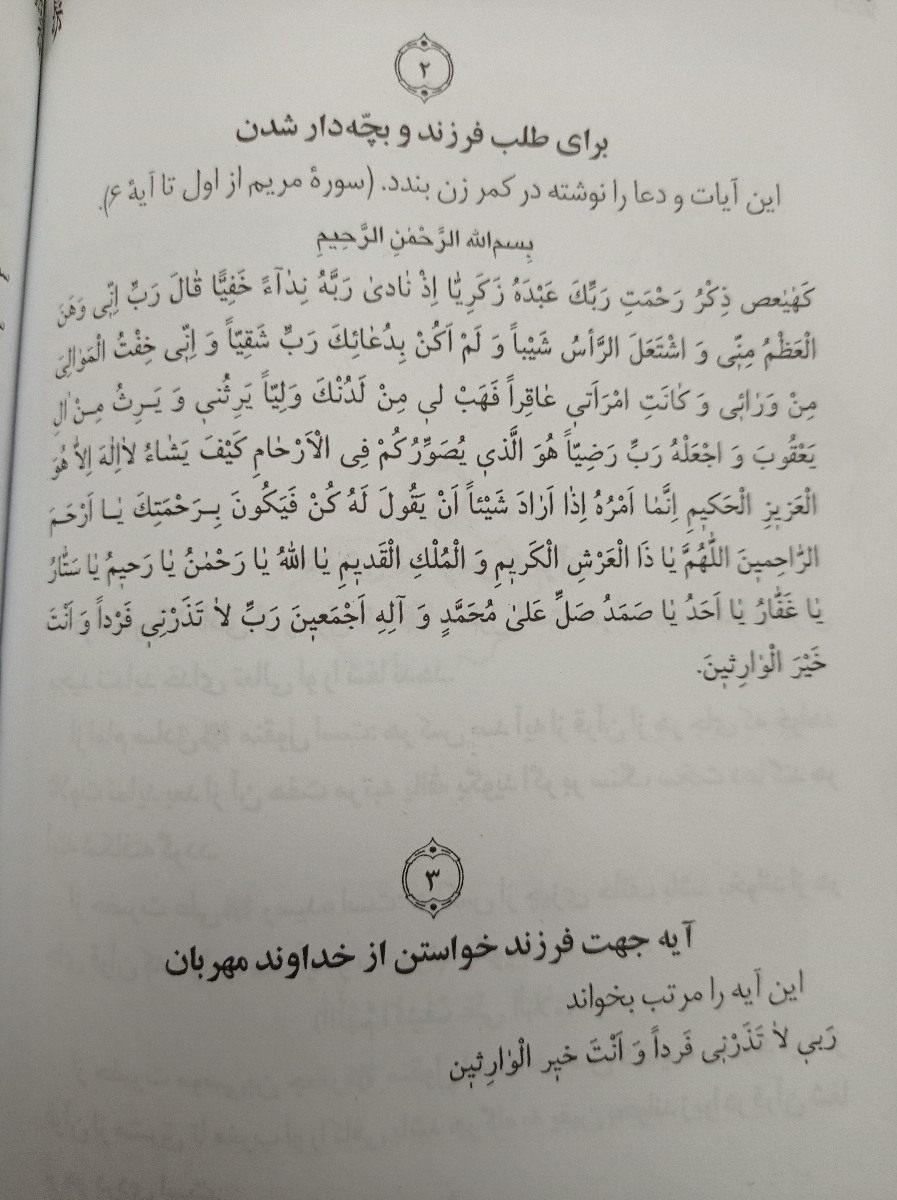 ۲
برای طلب فرزند و بچّه‌دار شدن
این آیات و دعا را نوشته در کمر زن بندد. (سورهٔ مریم از اول تا آیهٔ ۶).
بِسمِ‌الله الرَّحْمٰنِ الرَّحِيمِ
كَهٰيٰعص ذِكْرُ رَحْمَتِ رَبِّكَ عَبْدَهُ زَكَرِيّٰا اِذْ نٰادىٰ رَبَّهُ نِدٰآءً خَفِيًّا قٰالَ رَبِّ اِنّٖى وَهَنَ
الْعَظْمُ مِنّٖى وَ اشْتَعَلَ الرَّأسُ شَيْباً وَ لَمْ اَكُنْ بِدُعٰائِكَ رَبِّ شَقِيّاً وَ اِنّٖى خِفْتُ الْمَوٰالِىَ
مِنْ وَرٰائٖى وَ كٰانَتِ امْرَأَتٖى عٰاقِراً فَهَبْ لٖى مِنْ لَدُنْكَ وَلِيّاً يَرِثُنٖى وَ يَـرِثُ مِـنْ اٰلِ
يَعْقُوبَ وَ اجْعَلْهُ رَبِّ رَضِيّاً هُوَ الَّذٖى يُصَوِّرُكُمْ فِى الْاَرْحٰامِ كَيْفَ يَشٰاءُ لاٰاِلٰهَ اِلاّٰ هُوَ
الْعَزٖيزِ الْحَكٖيمِ اِنَّمٰا اَمْرُهُ اِذٰا اَرٰادَ شَيْئاً اَنْ يَقُولَ لَهُ كُنْ فَيَكُونَ بِـرَحْمَتِكَ يٰـا اَرْحَـمَ
الرّٰاحِمٖينَ اَللّٰهُمَّ يٰا ذَا الْعَرْشِ الْكَرٖيمِ وَ الْمُلْكِ الْقَدٖيمِ يٰا اَللهُ يٰا رَحْمٰنُ يٰا رَحٖيمُ يٰا سَتّٰارُ
يٰا غَفّٰارُ يٰا اَحَدُ يٰا صَمَدُ صَلِّ عَلىٰ مُحَمَّدٍ وَ آلِهِ اَجْمَعٖينَ رَبِّ لاٰ تَذَرْنٖى فَرْداً وَ اَنْتَ
خَيْرَ الْوٰارِثٖينَ.
۳
آیه جهت فرزند خواستن از خداوند مهربان
این آیه را مرتب بخواند
رَبٖی لاٰ تَذَرْنٖی فَرداً وَ اَنْتَ خٖیر الْوٰارِثٖین